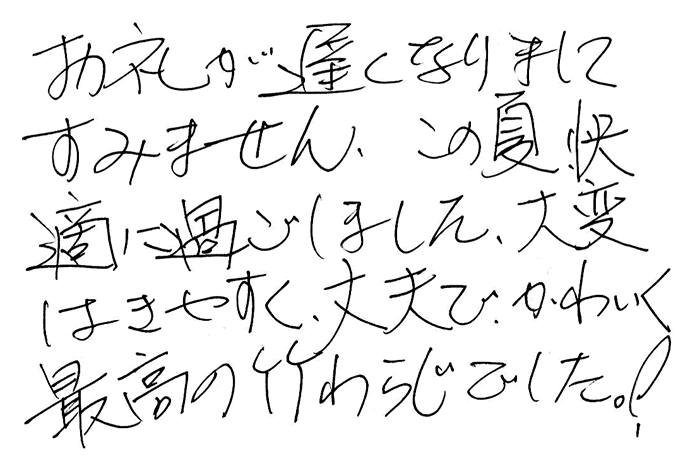 お礼が遅くなりまして
すみません、この夏快
適に過ごしました、大変
はきやすく、丈夫で、かわいく
最高の竹わらじでした。!